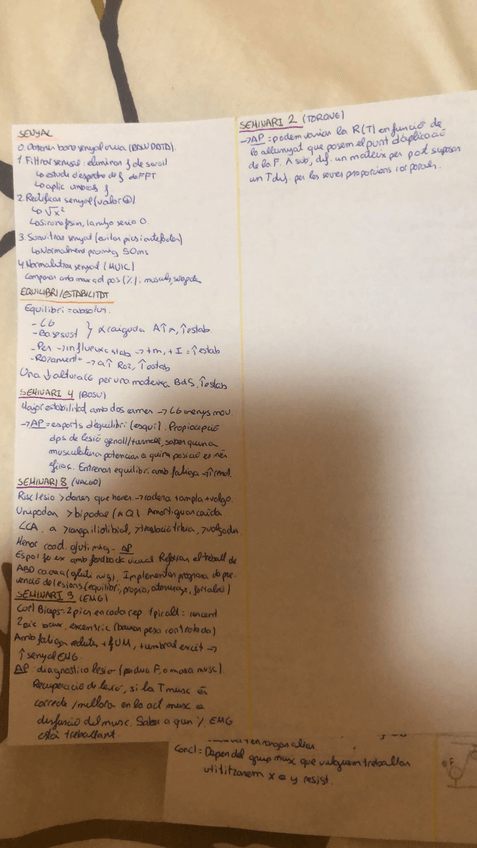 SENYAL
0. Obtenir bona senyal crua (RAW DATA).
1. Filtrar senyal: eliminar f de soroll
↳ estudi d'espectre de f de FFT
↳ aplic umbrals f.
2. Rectificar senyal (valor ⊕)
↳ √x²
↳ Si no ho fem, la mitja seria 0.
3. Suavitzar senyal (evitar pics i artefactes)
↳ Normalment promitg 50ms
4. Normalitzar senyal (MVIC)
comparar amb max ed pos (%). muscul, subjecte
EQUILIBRI/ESTABILITAT
Equilibri = absolut.
- CG
- Base sust } x caiguda A↑m, ↑estab.
- Pes → influeix estab → +m, + I = ↑estab
- Rozament → a↑ Roz, ↑estab
Una ↓ altura CG per una mateixa BdS, ↑estab
SEMINARI 4 (BOSU)
Major estabilitat amb dos cames → CG menys mov
→ AP = esports d'equilibri (esquí). Propiocepció
dps de lesió genoll/turmell, saber quina
musculatura potenciar a quina posició es més
eficaç. Entrenar equilibri amb fatiga → ↑rend.
SEMINARI 8 (VALGO)
Risc lesio > dones que homes → cadera + ampla + valgo.
Unipodal > bipodal (∧Q) Amortiguar caiguda
LCA.
Menor coord. gluti mitg. AP
Espai gran amb feedback visual. Reforçar el treball de
ABD cadera (gluti mitg). Implementar programa de pre-
venció de lesions (equilibri, propio, aterratge, força abs)
SEMINARI 9 (EMG)
Curl Biceps: 2 pics en cada rep. 1 pic alt: concent
2 pic baix, excentric (baixar peso controlada)
Amb fatiga reclutes + fUM, + umbral excit →
↑ senyal EMG.
AP: diagnostico lesio (perdua F, o massa musc).
Recuperacio de lesió, si la T musc és
correcte / millora en la act musc o
disfunció del musc. Saber a quin % EMG
està treballant
SEMINARI 2 (TORQUE)
→ AP = podem variar la R(T) en funció de
lo allunyat que posem el punt d'aplicació
de la F. A sub, dif. un mateix per pot suposar
un T dif. per les seves proporcions corporals.
en rangos altos
Concl: Depen del grup musc que vulguem treballar
utilitzarem x o y resist.
F